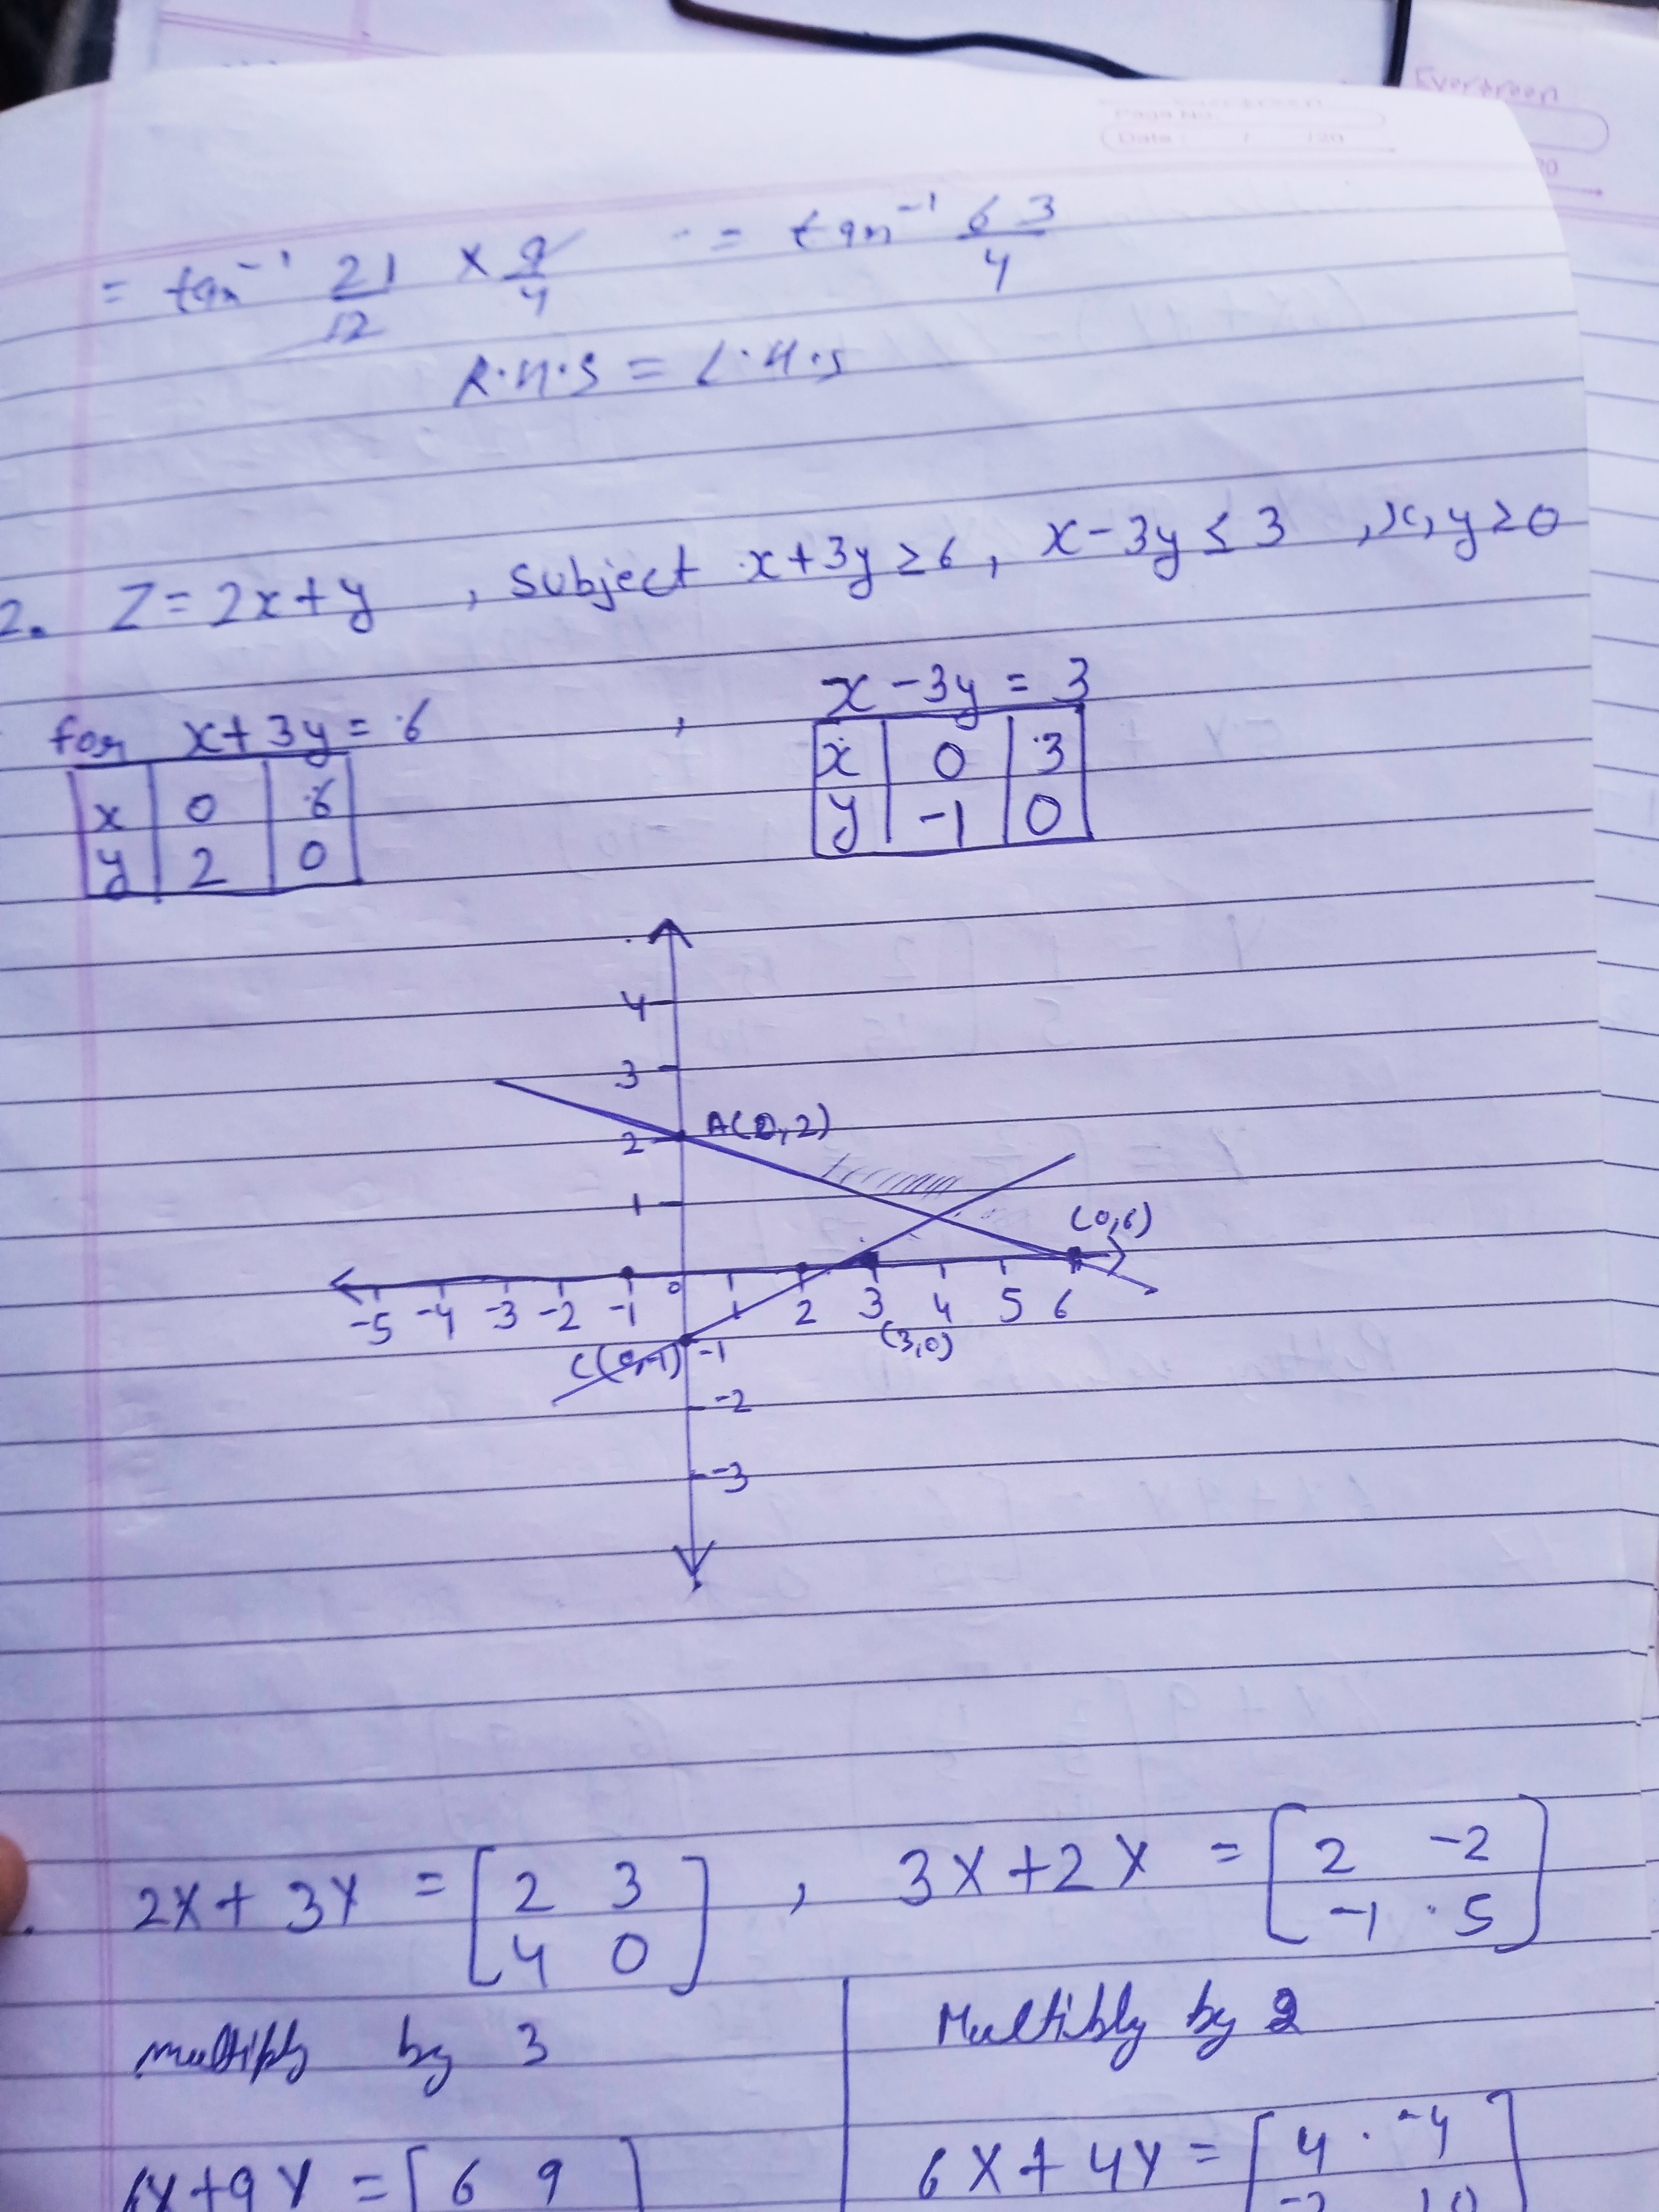 Evergreen
Page No.
Date : / /20
= tan⁻¹ 21/12 × 9/4 = tan⁻¹ 63/4
R.H.S = L.H.S
2. Z = 2x + y , Subject x + 3y ≥ 6, x - 3y ≤ 3 , x, y ≥ 0
for x + 3y = 6 , x - 3y = 3
x | 0 | 6
y | 2 | 0
x | 0 | 3
y | -1 | 0
4
3
2 A(0,2)
1
(0,6)
-5 -4 -3 -2 -1 0 1 2 3 4 5 6
(3,0)
C(0,-1) -1
-2
-3
2X + 3Y = [2 3
4 0] , 3X + 2Y = [2 -2
-1 5]
multiply by 3
Multibly by 2
6X + 9Y = [6 9
6X + 4Y = [4 -4
-2 10